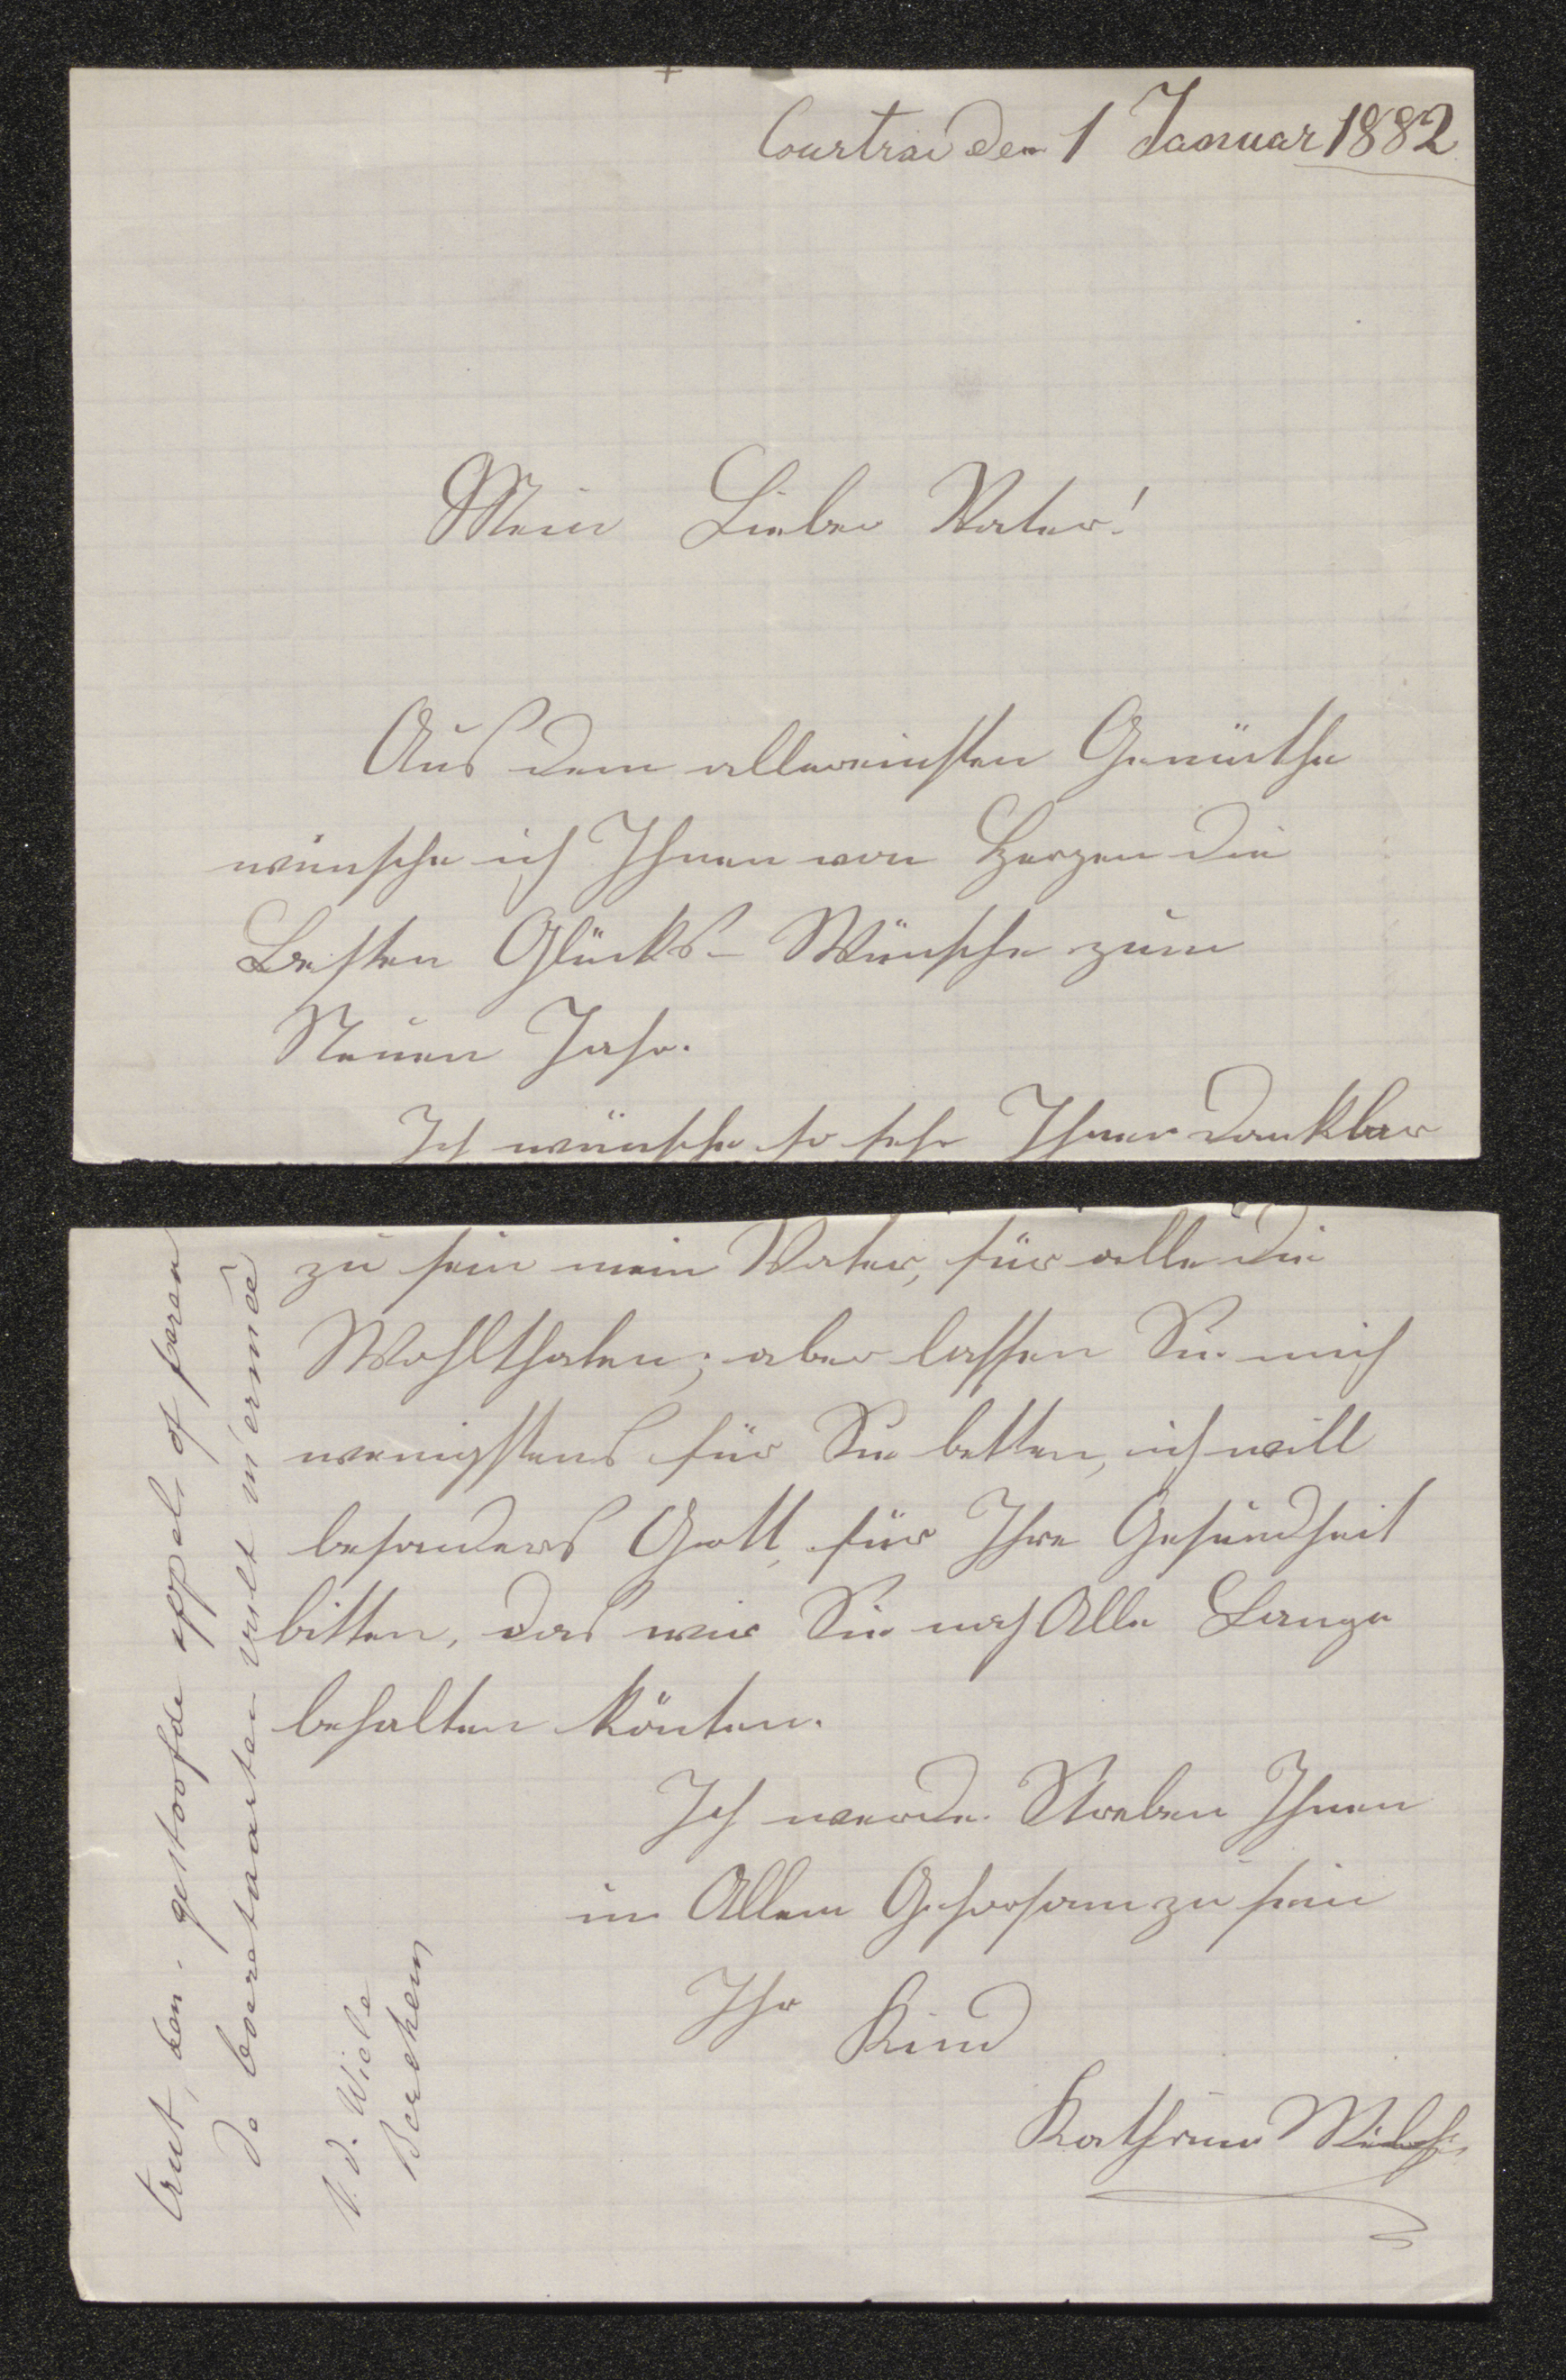 Courtrai den 1 Januar 1882
Mein Lieber Vater!
Aus dem allereinsten Gemüthe
wünsche ich Ihnen von Herzen die
Besten Glücks-Wünsche zum
Neuen Jahr.
Ich wünsche so sehr Ihnen dankbar
zu sein mein Vater, für alle die
Wohlthaten; aber lassen Sie mich
wenigstens für Sie betten, ich will
besonders Gott, für Ihre Gesundheit
bitten, das wir Sie noch Alle Lange
behalten könten.
Ich werde Streben Ihnen
in Allem Gehorsam zu sein
Ihr Kind
Kathrina
gestoofde appel of peren
de boeretaarten vult m'ermeê
V. d. Wiele
Berchem